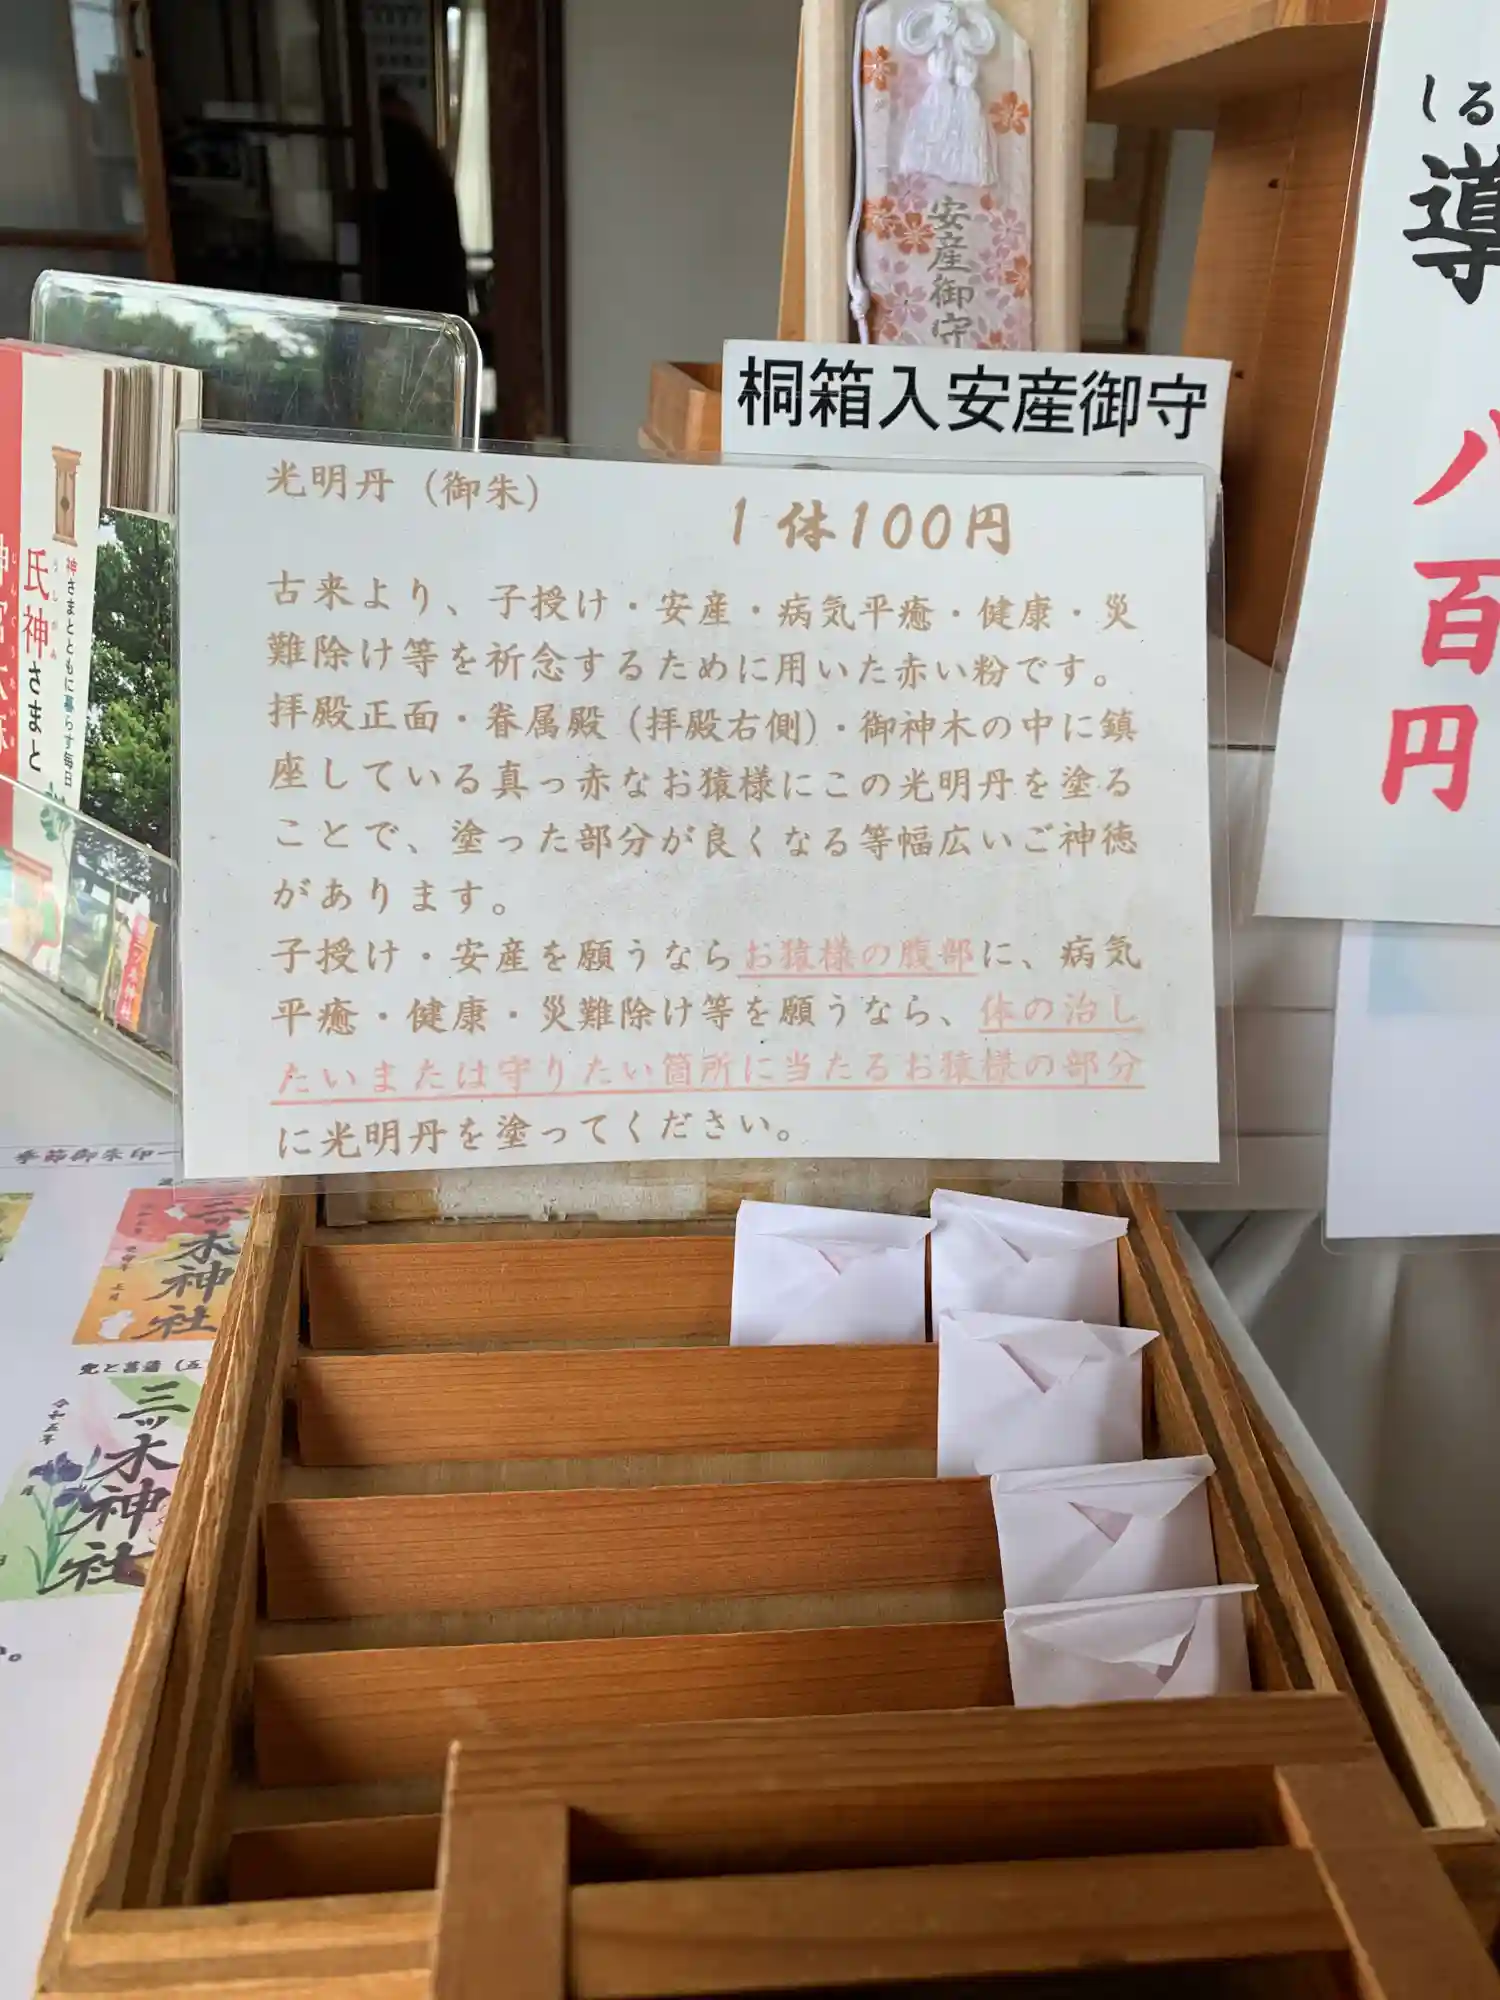 安産御守
桐箱入安産御守
しる
導
八百円
光明丹（御朱）
1体100円
古来より、子授け・安産・病気平癒・健康・災
難除け等を祈念するために用いた赤い粉です。
拝殿正面・眷属殿（拝殿右側）・御神木の中に鎮
座している真っ赤なお猿様にこの光明丹を塗る
ことで、塗った部分が良くなる等幅広いご神徳
があります。
子授け・安産を願うならお猿様の腹部に、病気
平癒・健康・災難除け等を願うなら、体の治し
たいまたは守りたい箇所に当たるお猿様の部分
に光明丹を塗ってください。
神さまとともに暮らす毎日
氏神さまと
季節御朱印一
三ッ木神社
兜と菖蒲（五
三ッ木神社